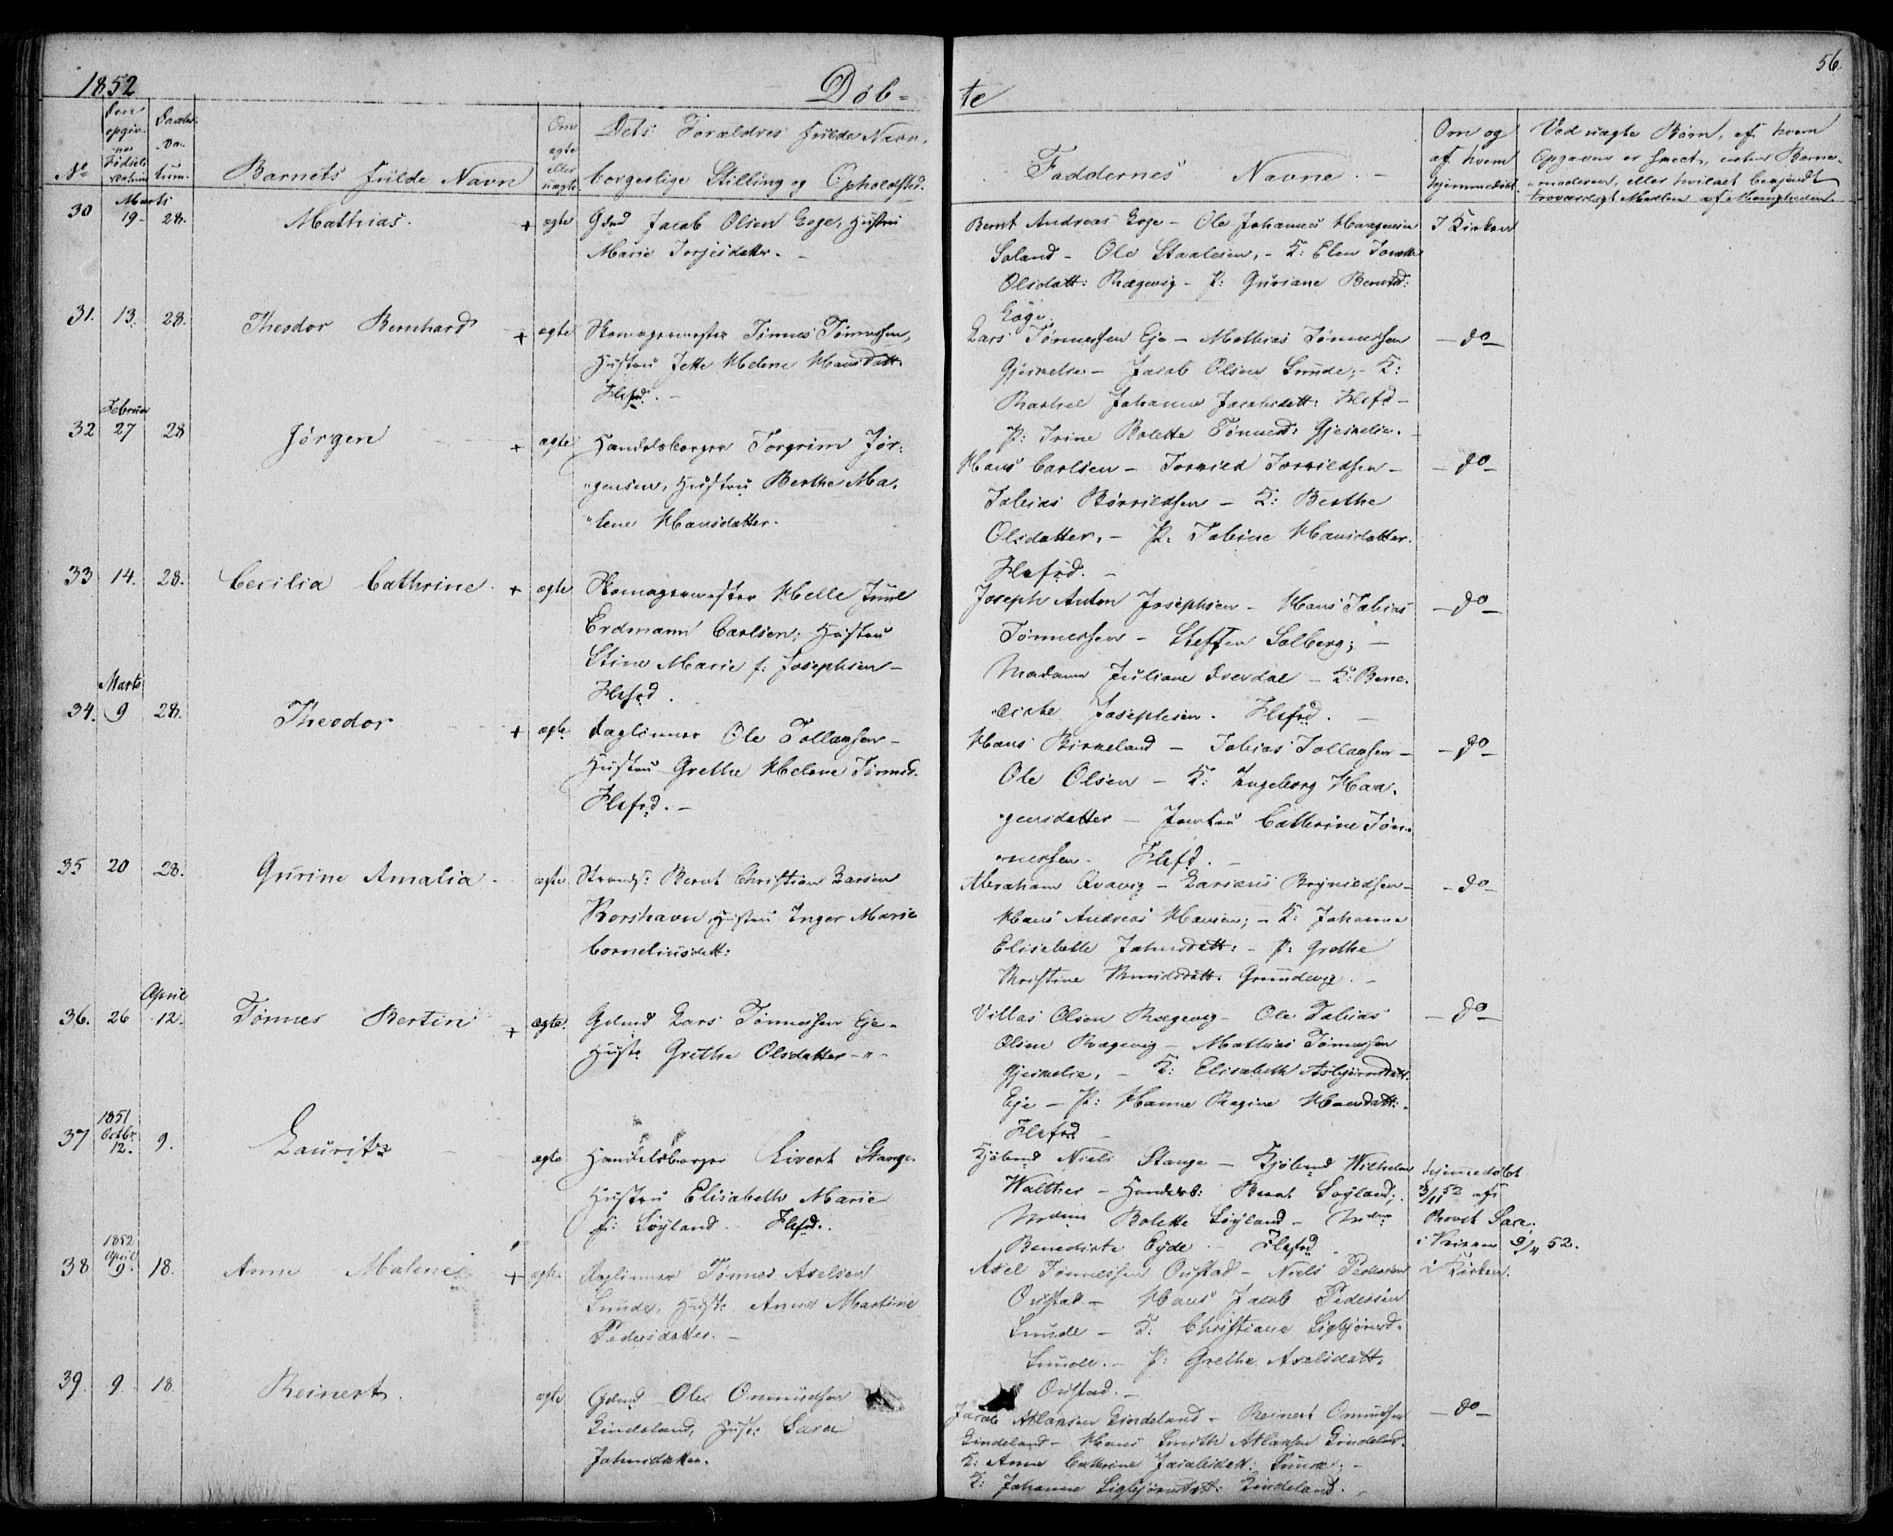 1852
Døb-
te
56.
No
Den opgivne Fødselsdatum
Daabs Datum
Barnets fulde Navn
Om ægte eller uægte
Dets Forældres fulde Navn,
borgerlige Stilling og Opholdsted.
Faddernes Navne.
Om og af hvem hjemmedøbt
Ved uægte Børn, af hvem
Opgaven er skeet, enten Barne-
moderen, eller hvilket bekjendt
troværdigt Medlem af Menigheden.
30 Marts 19. 28. Mathias. + ægte Gdmd Jacob Olsen Eoge, Hustru
Marie Torjesdatter.
Bernt Andreas Eoge – Ole Johannes Haagensen
Ole Staalesen, – K: Elen
Olsdatt: Rægevig – P: Guriane Berntsd:
Eoge.
I Kirken
31. 13. 28. Theodor Bernhard + ægte Skomagermester Tønnes Tønnessen,
Hustru Jette Helene Hansdatt.
Flkfrd. –
Lars Tønnessen Eje – Mathias Tønnessen
Gjeskelie – Jacob Olsen Sunde, – K:
Rachel Johanne Jacobsdatt: Flkfd –
P: Trine Bolette Tønnesd: Gjeskelie.
– do –
32 Februar 27 28 Jørgen + ægte Handelsborger Torgrim Jør-
gensen, Hustru Berthe Ma-
lene Hansdatter.
Hans Carlsen – Torkild Torkildsen –
Tobias Børrildsen – K: Berthe
Olsdatter, – P: Tobine Hansdatter
Flkfjrd. –
– do –
33 14. 28. Cecilia Cathrine. + ægte Skomagermester Helle Juul
Erdmann Carlsen; Hustru
Stine Marie f: Josephsen –
Flkfrd.
Joseph Anton Josephsen – Hans Tobias
Tønnessen – Steffen Solberg; –
Madame Juliane Drevdal – K: Bene-
dicte Josephsen. Flkfrd. –
– do –
34. Marts 9 28. Theodor + ægte Daglønner Ole Tollagsen –
Hustru Grethe Helene Tønnesd.
Flkfrd. –
Hans Birkeland – Tobias Tollagsen –
Ole Olsen – K: Ingeborg Haa-
gensdatter – Jomfru Cathrine Tøn-
nessen. Flkfd. –
– do –
35 20 28. Gurine Amalia. ægte Strands: Bernt Christian Larsen
Korshavn, Hustru Inger Marie
Corneliusdatt:
Abraham – Larsens Brynildsen –
Hans Andreas Hansen; – K: Johanne
Elisabeth Jahnsdatt: – P: Grethe
Kristine Knudsdatt: Grundevig. –
– do –
36. 26 April 12. Tønnes Bertin + ægte. Gdmd Lars Tønnessen Eje –
Hustr: Grethe Olsdatter – " –
Villas Olsen Rægevig – Ole Tobias
Olsen Rægevig – Mathias Tønnessen
Gjeskelie, – K: Elisabeth Asbjørnsdatt.
Eje – P: Hanne Regine Hansdatt:
Flkfrd –
– do –
37 1851 Octbr. 12. 9. Lauritz ægte Handelsborger Sivert Stange.
Hustru Elisabeth Marie
f: Søyland Flkfrd.
Kjøbmd Niels Stange – Kjøbmd Wilhelm
Walther – Handelsb: Bernt Søyland;
Mdme Bolette Søyland – Mdme
Benedicte Eyde – Flkfrd
hjemmedøbt
3/11 52 af
Provst
i Kirken 9/4 52.
38 1852 April 9. 18. Anne Malene + ægte Daglønner Tønnes Axelsen
Sunde, Hustr: Anne Martine
Pedersdatter. –
Axel Tønnessen Oustad – Niels Pedersen
Oustad – Hans Jacob Pedersen
Sunde – K: Christiane Sigbjørnsd.
Sunde. – P: Grethe Axelsdatt.
Oustad. –
i Kirken.
39. 9. 18. Reinert. ægte Gdmd Ole Omundsen
Lindeland, Hustr: Sara
Jahnsdatter.
Jacob Atlaksen Lindeland – Reinert Omundsen
Lindeland – Hans Smith Atlaksen Lindeland.
K: Anne Cathrine Jacobsdatt: Sunde; –
K: Johanne Sigbjørnsdatt: Lindeland.
– do –